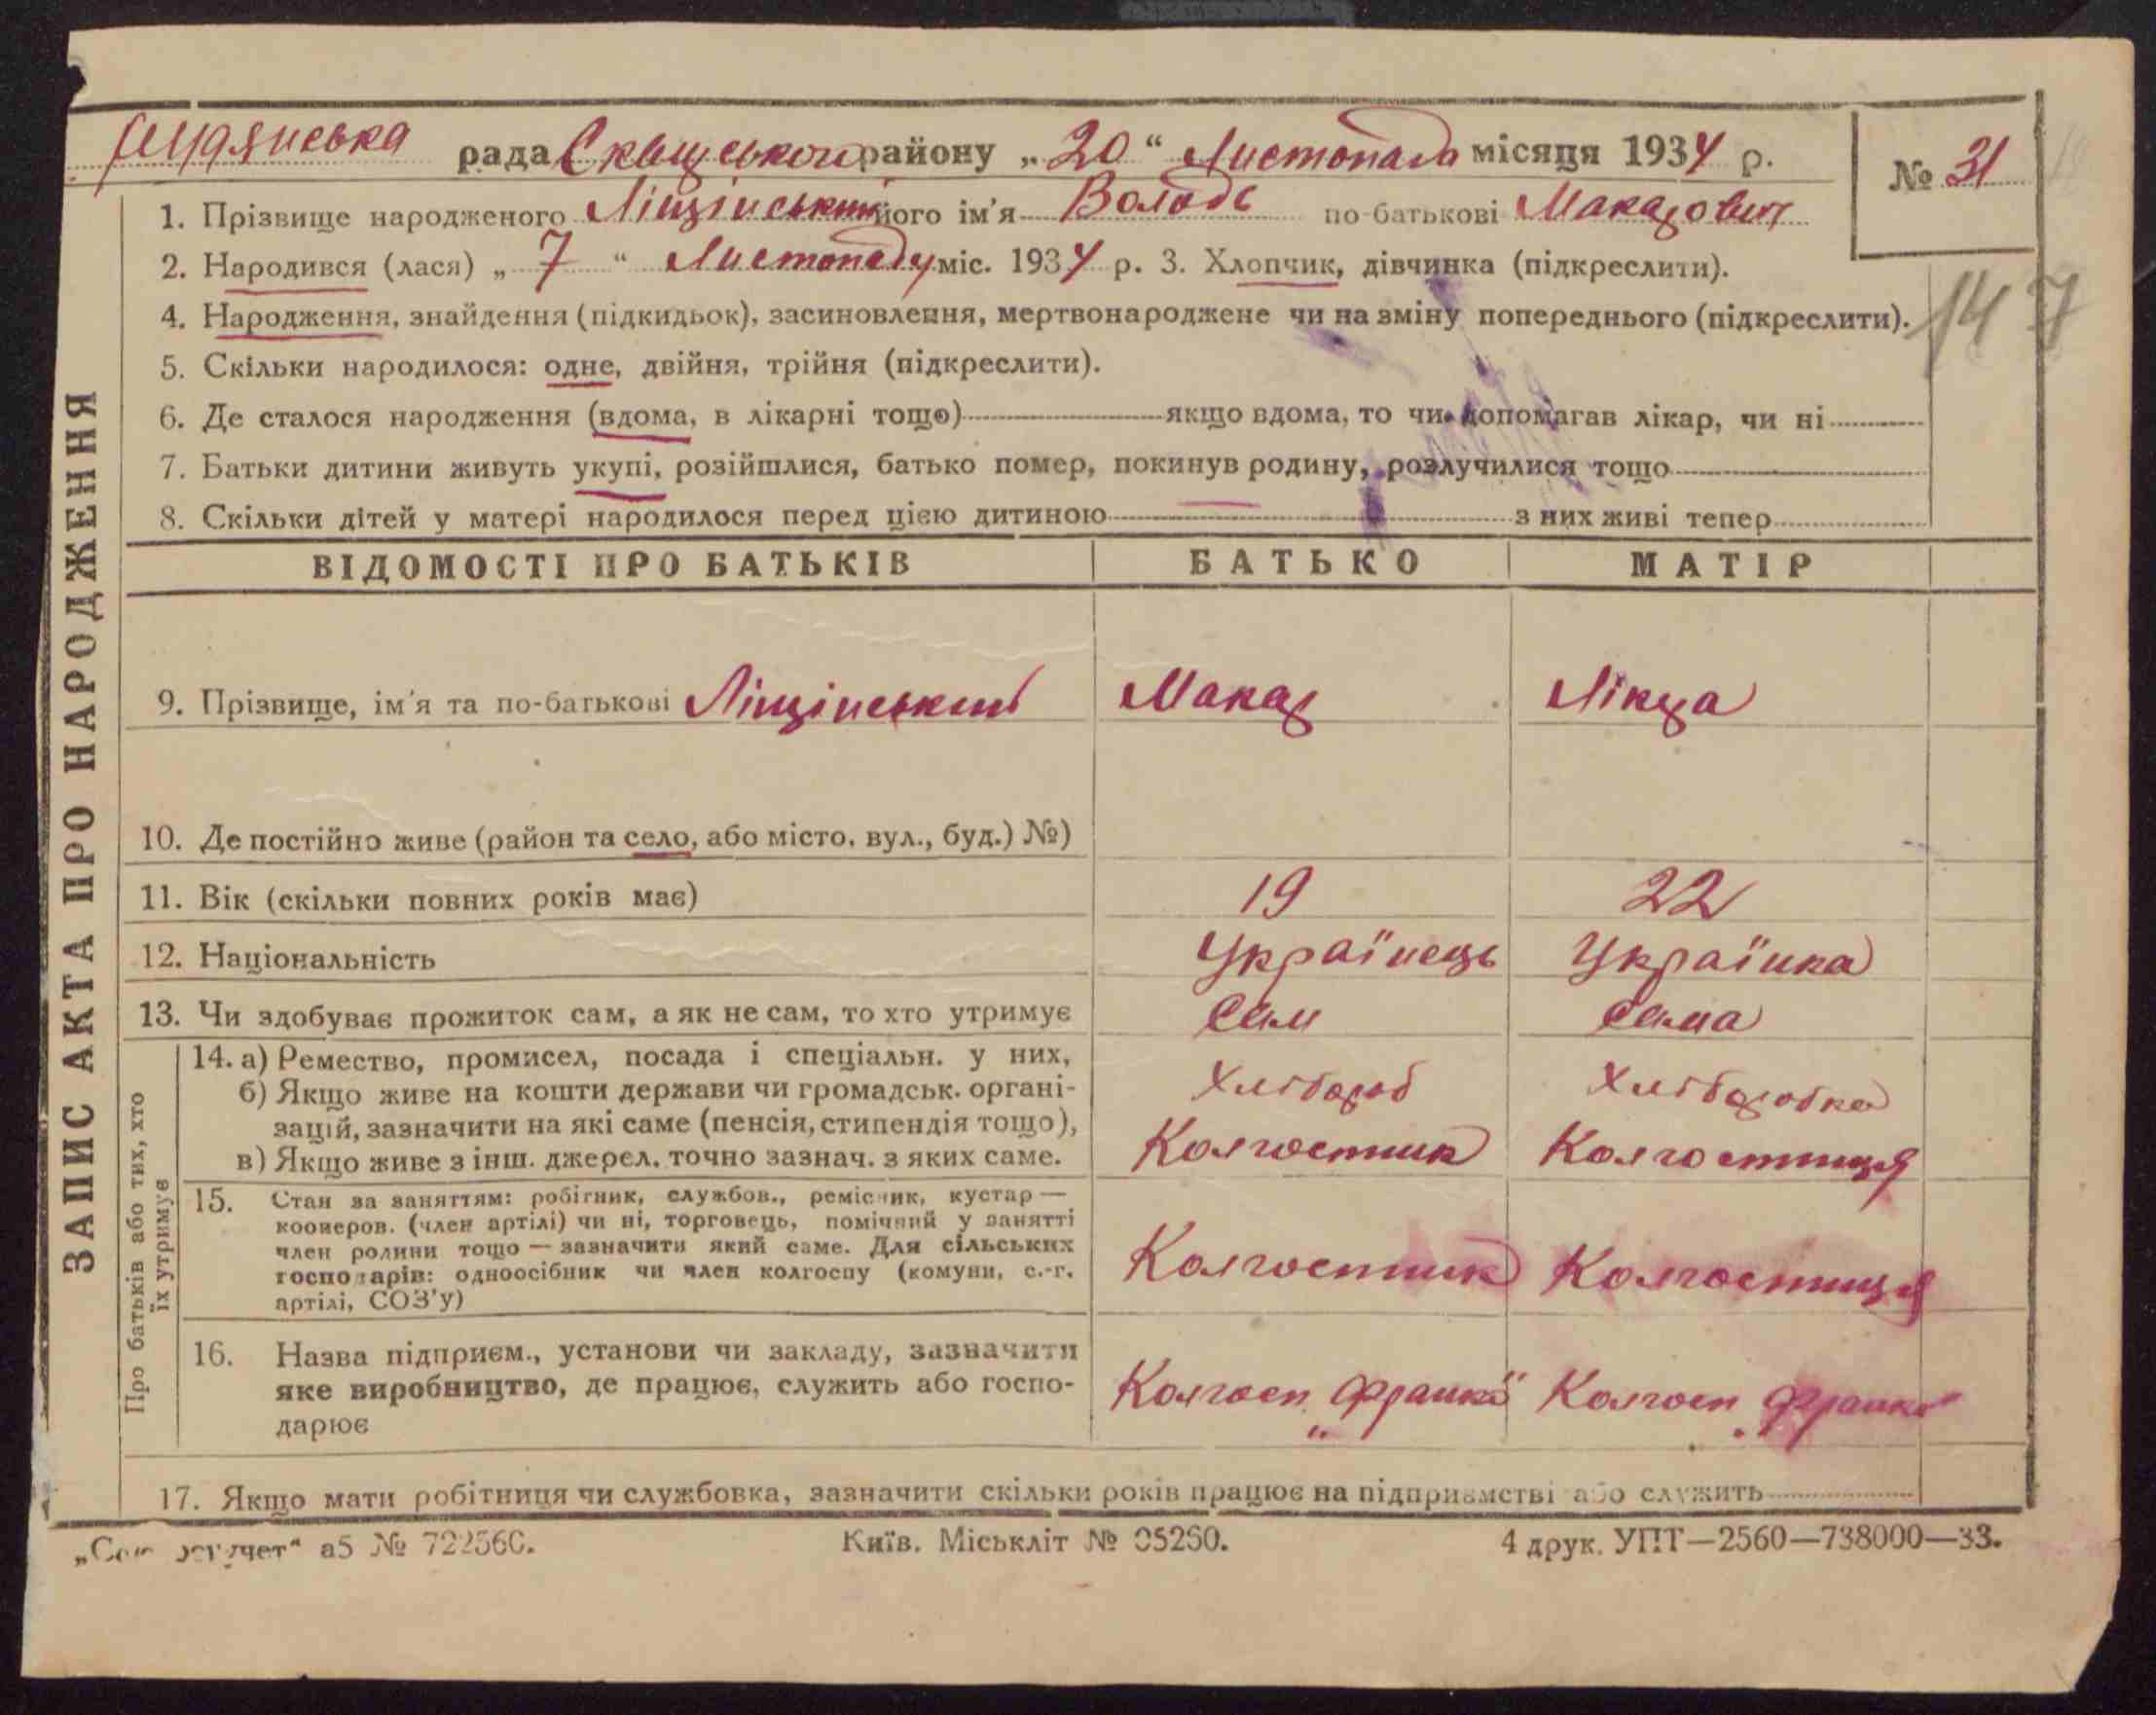 рада Сквирського району „20“ Листопада місяця 1934 р.
№ 31
1. Прізвище народженого Ліщінський його ім'я Володь по-батькові Макарович
2. Народився (лася) „7“ Листопаду міс. 1934 р. 3. Хлопчик, дівчинка (підкреслити).
4. Народження, знайдення (підкидьок), засиновлення, мертвонароджене чи на зміну попереднього (підкреслити).
147
5. Скільки народилося: одне, двійня, трійня (підкреслити).
6. Де сталося народження (вдома, в лікарні тощо) якщо вдома, то чи допомагав лікар, чи ні
7. Батьки дитини живуть укупі, розійшлися, батько помер, покинув родину, розлучилися тощо
8. Скільки дітей у матері народилося перед цією дитиною — з них живі тепер
ЗАПИС АКТА ПРО НАРОДЖЕННЯ
ВІДОМОСТІ ПРО БАТЬКІВ БАТЬКО МАТІР
9. Прізвище, ім'я та по-батькові Ліщінський Макар Лікра
10. Де постійно живе (район та село, або місто, вул., буд.) №)
11. Вік (скільки повних років має) 19 22
12. Національність Українець Українка
13. Чи здобуває прожиток сам, а як не сам, то хто утримує Сам Сама
Про батьків або тих, хто їх утримує
14. а) Ремество, промисел, посада і спеціальн. у них,
б) Якщо живе на кошти держави чи громадськ. органі- Хлібороб Хліборобка
зацій, зазначити на які саме (пенсія, стипендія тощо),
в) Якщо живе з інш. джерел. точно зазнач. з яких саме. Колгоспник Колгоспниця
15. Стан за заняттям: робітник, службов., ремісник, кустар —
кооперов. (член артілі) чи ні, торговець, помічний у занятті
член родини тощо — зазначити який саме. Для сільських Колгоспник Колгоспниця
господарів: одноосібник чи член колгоспу (комуни, с.-г.
артілі, СОЗ'у)
16. Назва підприєм., установи чи закладу, зазначити
яке виробництво, де працює, служить або госпо- Колгосп „Франка“ Колгосп „Франка“
дарює
17. Якщо мати робітниця чи службовка, зазначити скільки років працює на підприємстві або служить
а5 № 722560. Київ. Міськліт № 05250. 4 друк. УПТ—2560—738000—33.